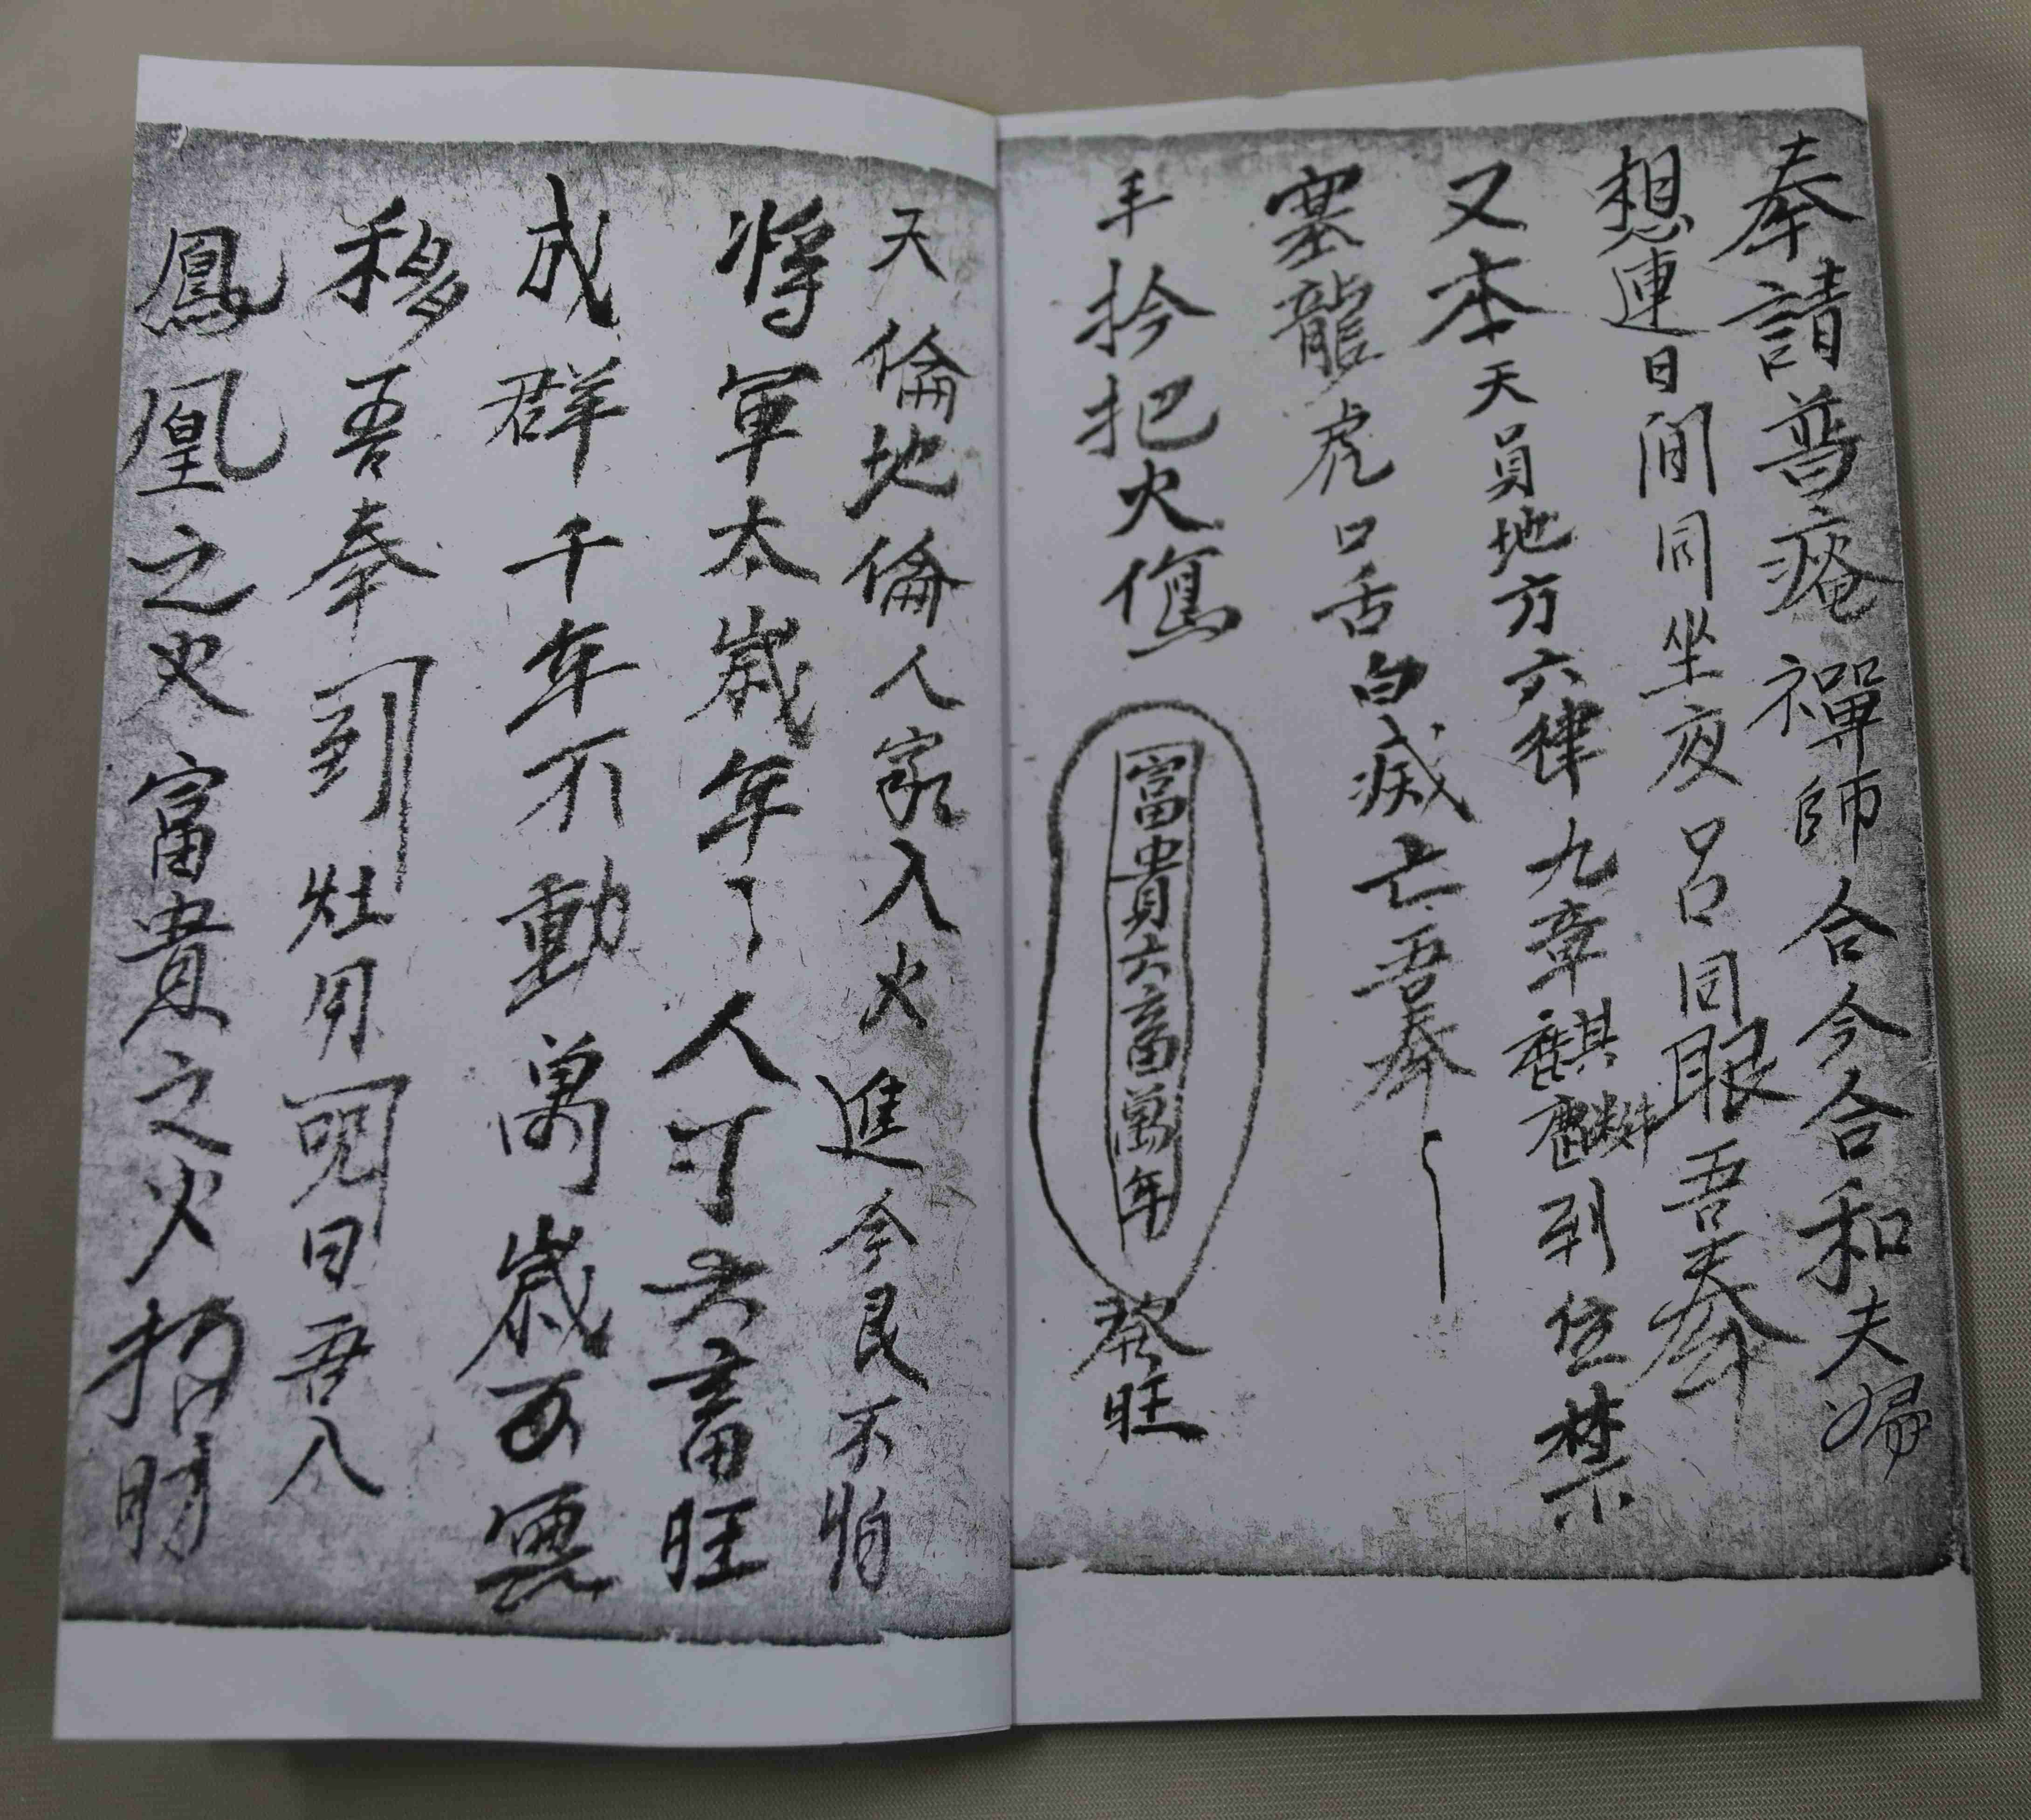 奉請普庵禪師合今合和夫婦
想連日間同坐夜呂同眼吾奉
又本天員地方六律九章麒麟到位禁
塞龍虎口舌白滅亡吾奉
手拎把火
富貴六畜萬年
發旺
天倫地倫人家入火進今艮不怕
將軍太歲年了了人丁六畜旺
成群千年不動萬歲不
移吾奉到灶用咒曰吾入
鳳凰之火富貴之火招財